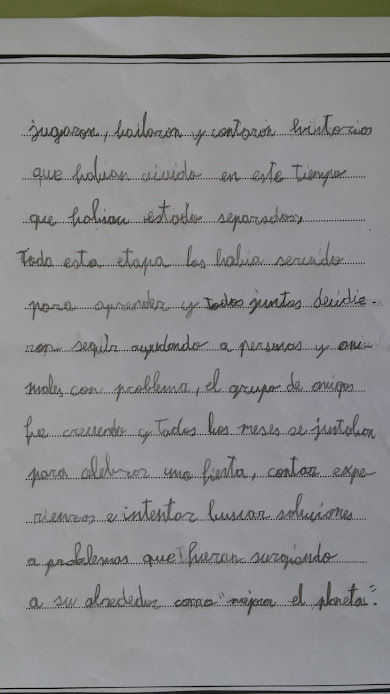 jugaron, bailaron y contaron historias
que habian vivido en este tiempo
que habian estado separados,
Toda esta etapa los habia servido
para aprender y todos juntos decidie-
ron seguir ayudando a personas y ani-
males con problema, el grupo de amigos
fue creciendo y todos los meses se juntaban
para celebrar una fiesta, contar expe-
riencias e intentar buscar soluciones
a problemas que fueran surgiendo
a su alrededor como "mejorar el planeta".